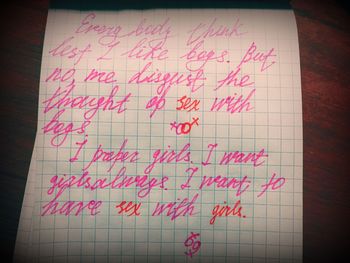 Every body think
lest I like boys. But
no, me disgust the
thought of sex with
boys.
I prefer girls. I want
girls always. I want to
have sex with girls.